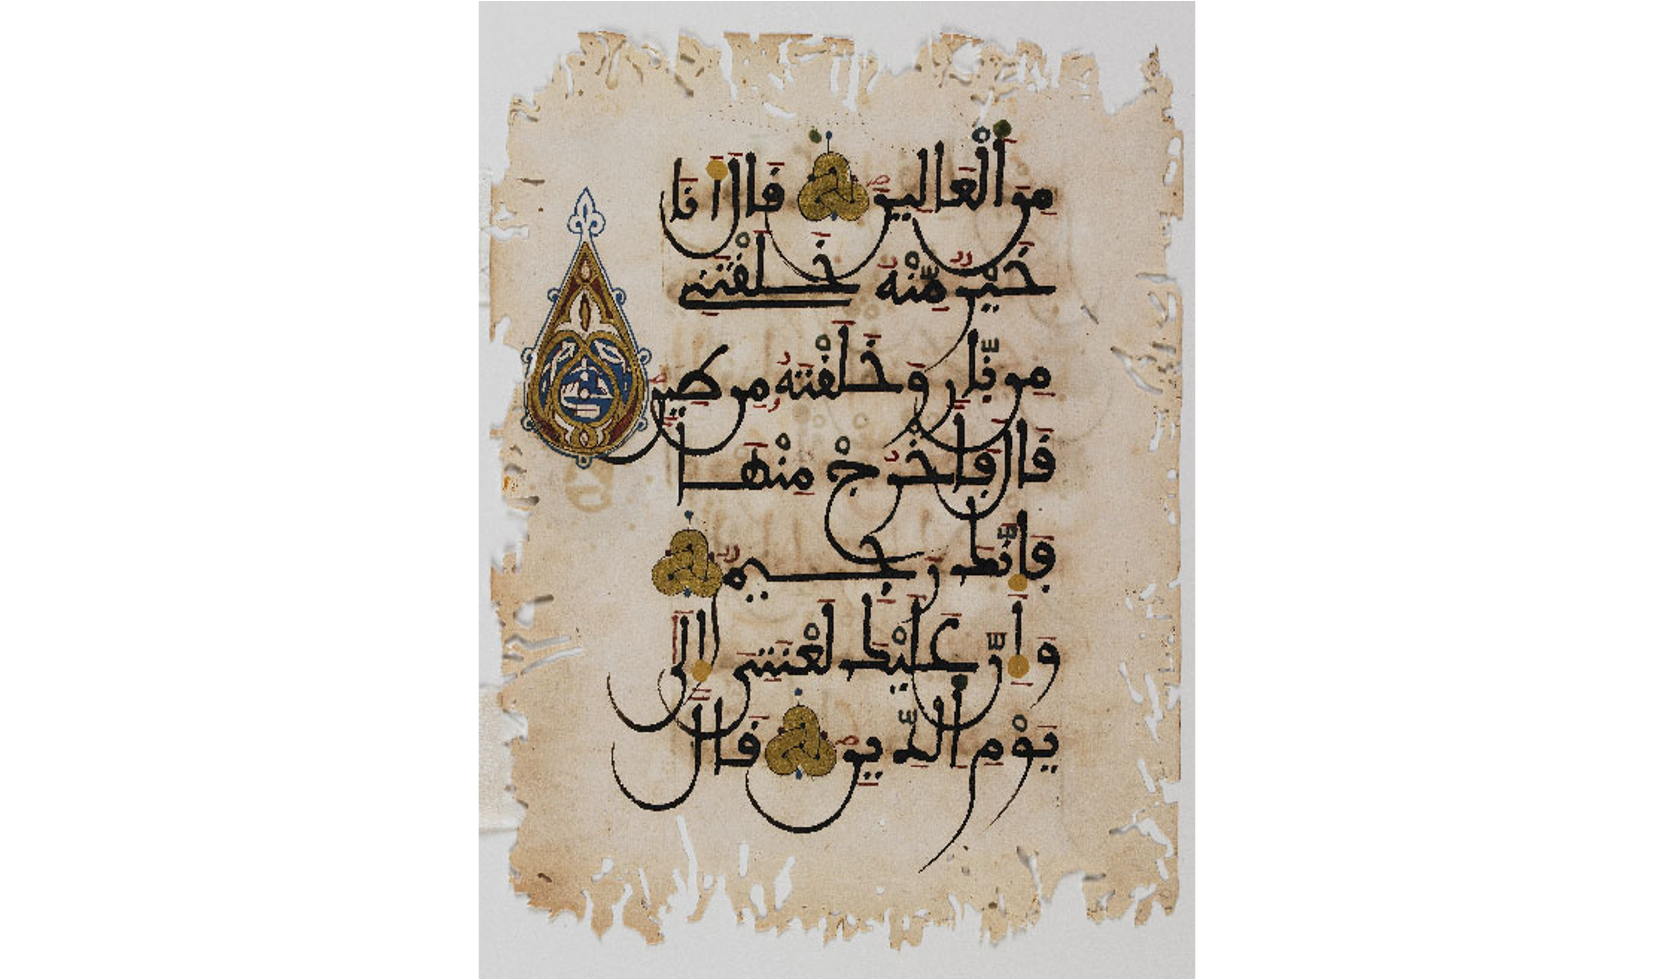 مِنَ ٱلْعَالِينَ قَالَ أَنَا
خَيْرٌ مِّنْهُ خَلَقْتَنِي
مِن نّ۪ارٍ وَخَلَقْتَهُ مِن طِينٍ
قَالَ فَٱخْرُجْ مِنْهَا
فَإِنَّكَ رَجِيمٌ
وَإِنَّ عَلَيْكَ لَعْنَتِي إِلَىٰ
يَوْمِ ٱلدِّينِ قَالَ